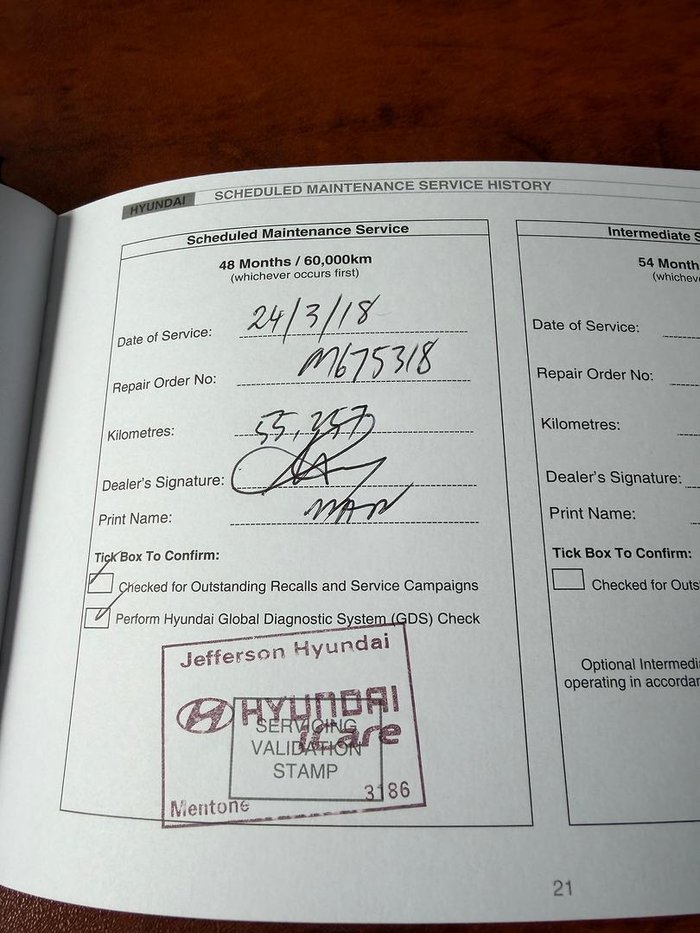 HYUNDAI SCHEDULED MAINTENANCE SERVICE HISTORY
Scheduled Maintenance Service
48 Months / 60,000km
(whichever occurs first)
Date of Service: 24/3/18
Repair Order No: M675318
Kilometres: 55,257
Dealer's Signature:
Print Name:
Tick Box To Confirm:
Checked for Outstanding Recalls and Service Campaigns
Perform Hyundai Global Diagnostic System (GDS) Check
Jefferson Hyundai
HYUNDAI
iCare
SERVICING
VALIDATION
STAMP
Mentone 3186
Intermediate S
54 Month
(whichev
Date of Service:
Repair Order No:
Kilometres:
Dealer's Signature:
Print Name:
Tick Box To Confirm:
Checked for Outs
Optional Intermedi
operating in accordan
21